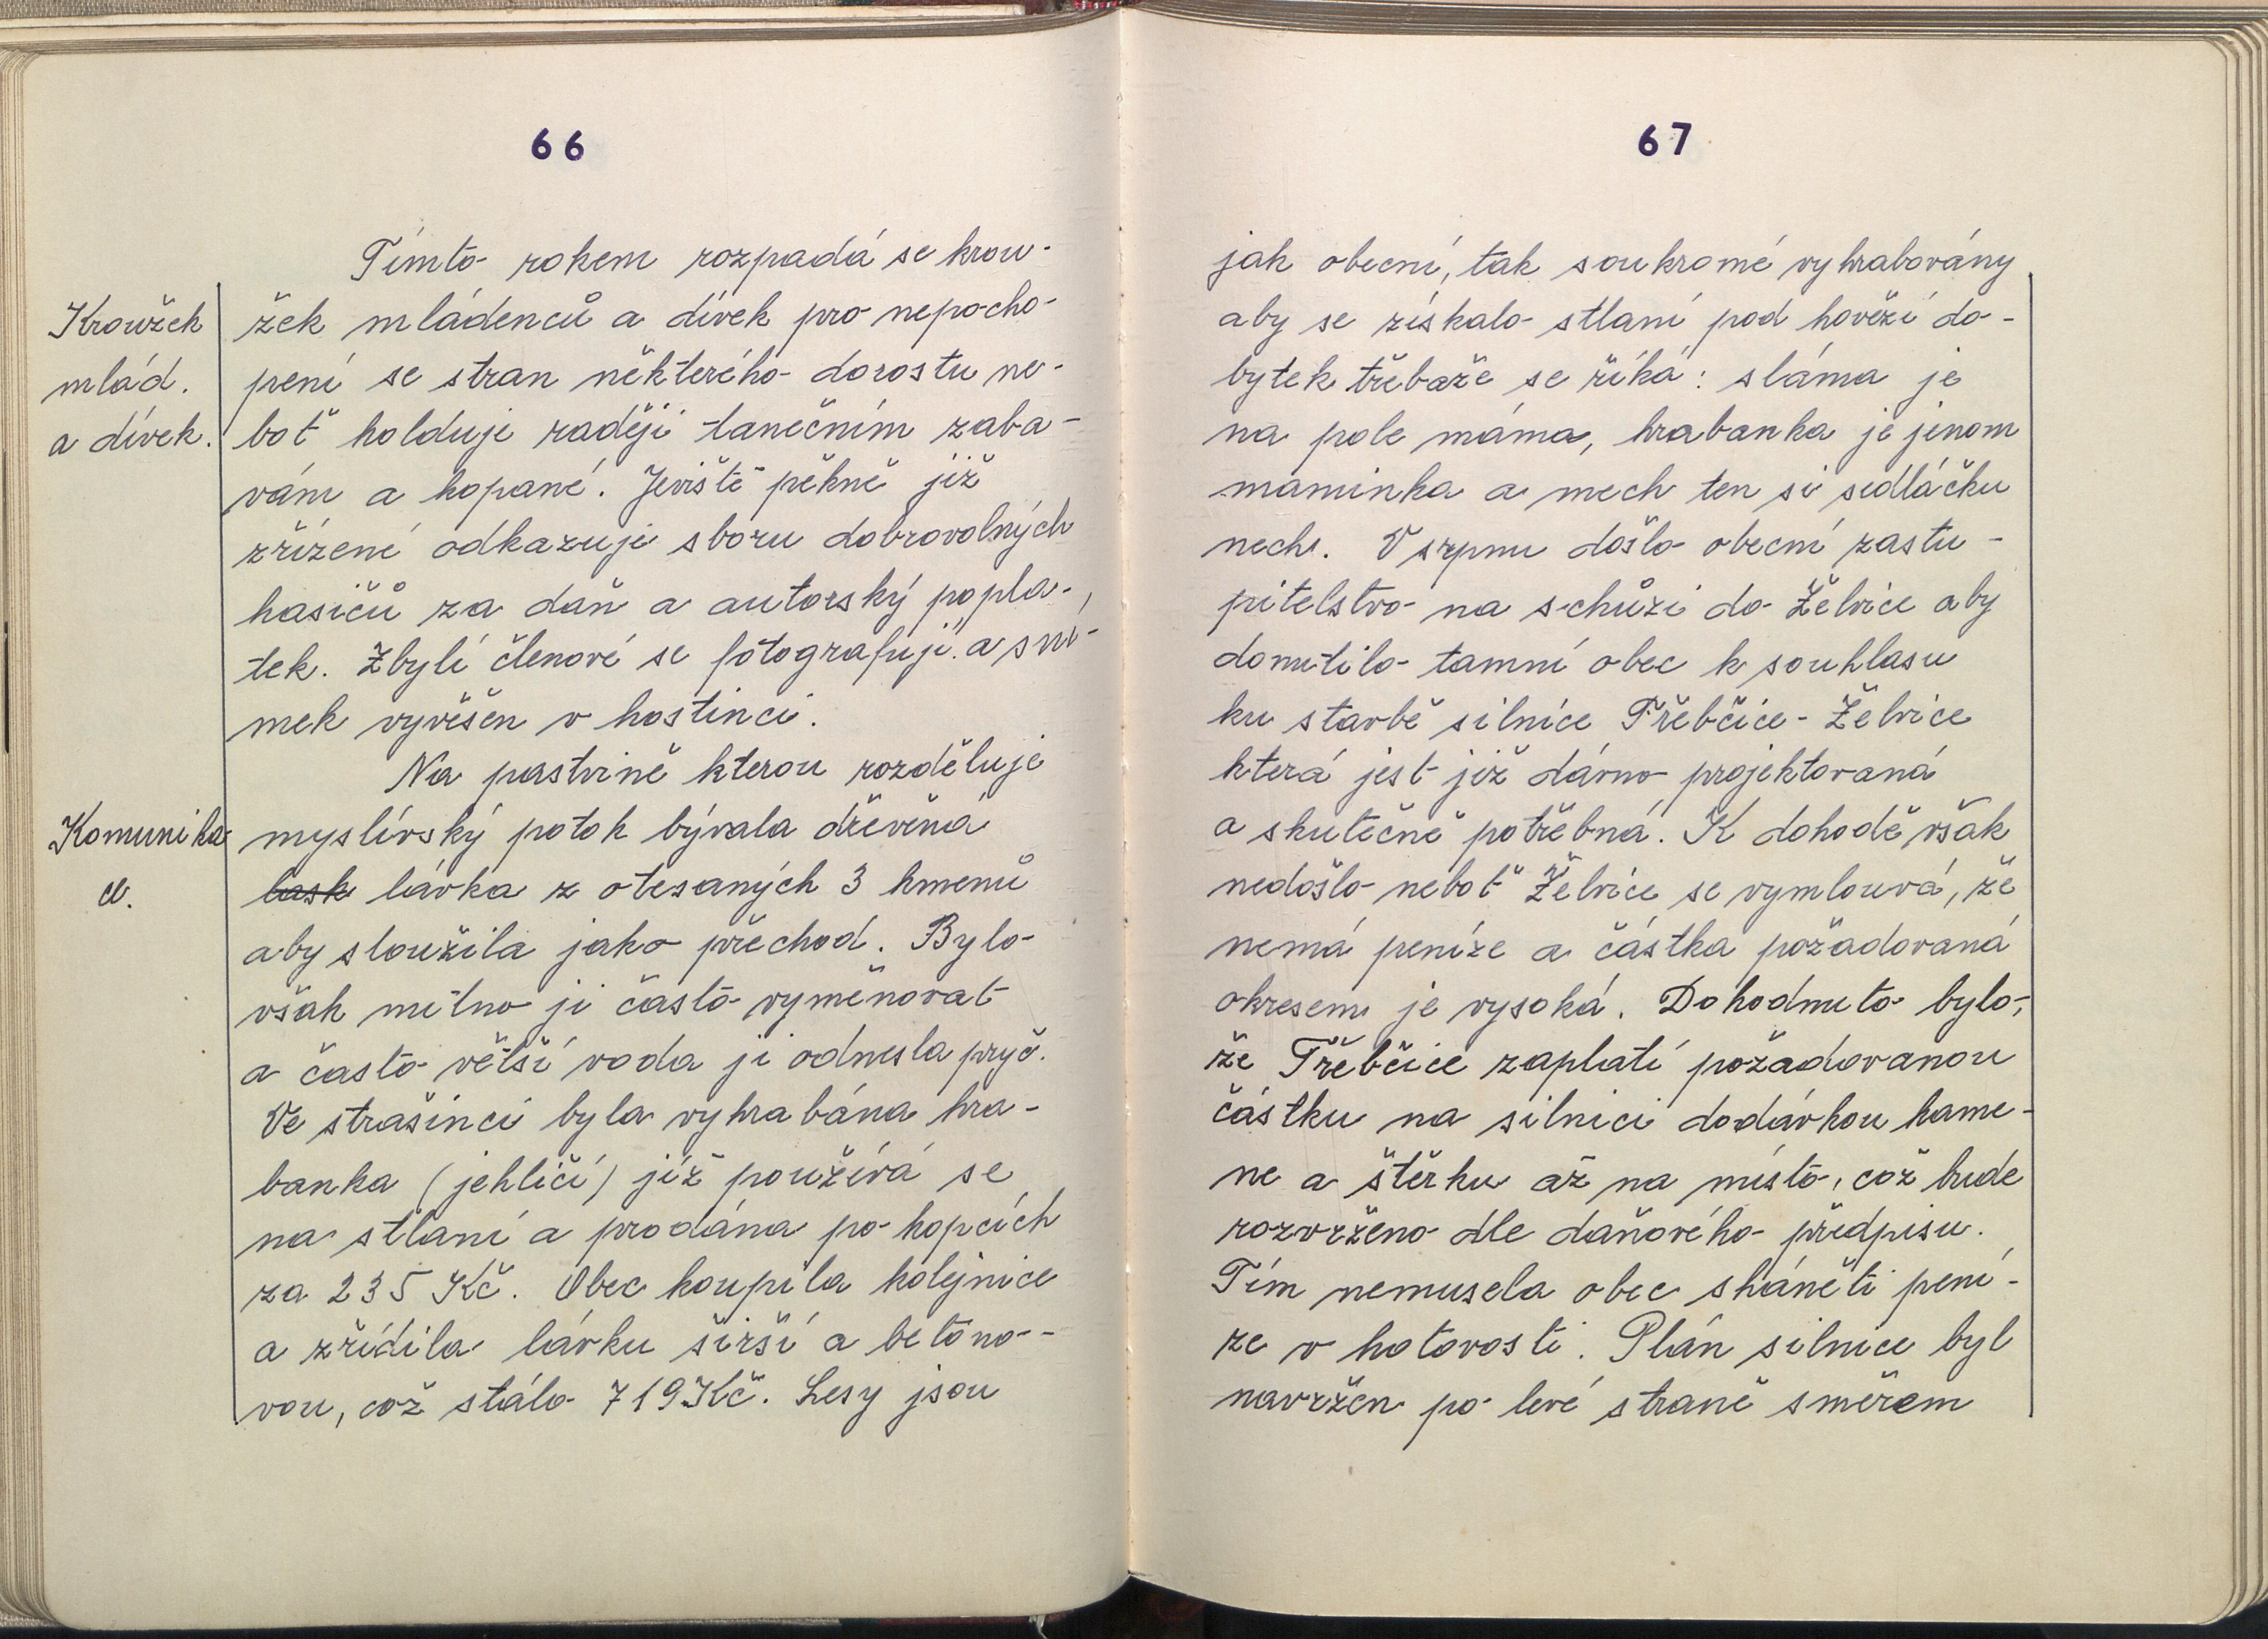 66
Tímto rokem rozpadá se krou-
Kroužek
mlád.
a dívek.
žek mládenců a dívek pro nepocho-
pení se stran některého dorostu ne-
boť holduje raději tanečním zaba-
vám a kopané. Jeviště pěkně již
zřízení odkazuje sboru dobrovolných
hasičů za daň a autorský popla-
tek. Zbylí členové se fotografují a sní-
mek vyvěšen v hostinci.
Na pastvině kterou rozděluje
Komunika
ce.
myslívský potok bývala dřevěná
lask lávka z otesaných 3 kmenů
aby sloužila jako přechod. Bylo
však nutno ji často vyměňovat
a často větší voda ji odnesla pryč.
Ve strašinci byla vyhrabána hra-
banka (jehličí) jíž používá se
na stlaní a prodána po kopcích
za 235 Kč. Obec koupila kolejnice
a zřídila lávku širší a betono-
vou, což stálo 719 Kč. Lesy jsou
67
jak obecní, tak soukromé vyhrabovány
aby se získalo stlaní pod hovězí do-
bytek třebaže se říká: sláma je
na pole máma, hrabanka je jenom
maminka a mech ten si sedláčku
nech. V srpnu došlo obecní zastu-
pitelstvo na schůzi do Želvice aby
donutilo tamní obec k souhlasu
ku stavbě silnice Třebčice - Želvice
která jest již dávno projektovaná
a skutečně potřebná. K dohodě však
nedošlo neboť Želvice se vymlouvá, že
nemá peníze a částka požadovaná
okresem je vysoká. Dohodnuto bylo,
že Třebčice zaplatí požadovanou
částku na silnici dodávkou kame-
ne a štěrku až na místo, což bude
rozvrženo dle daňového předpisu.
Tím nemusela obec sháněti pení-
ze v hotovosti. Plán silnice byl
navržen po levé straně směrem